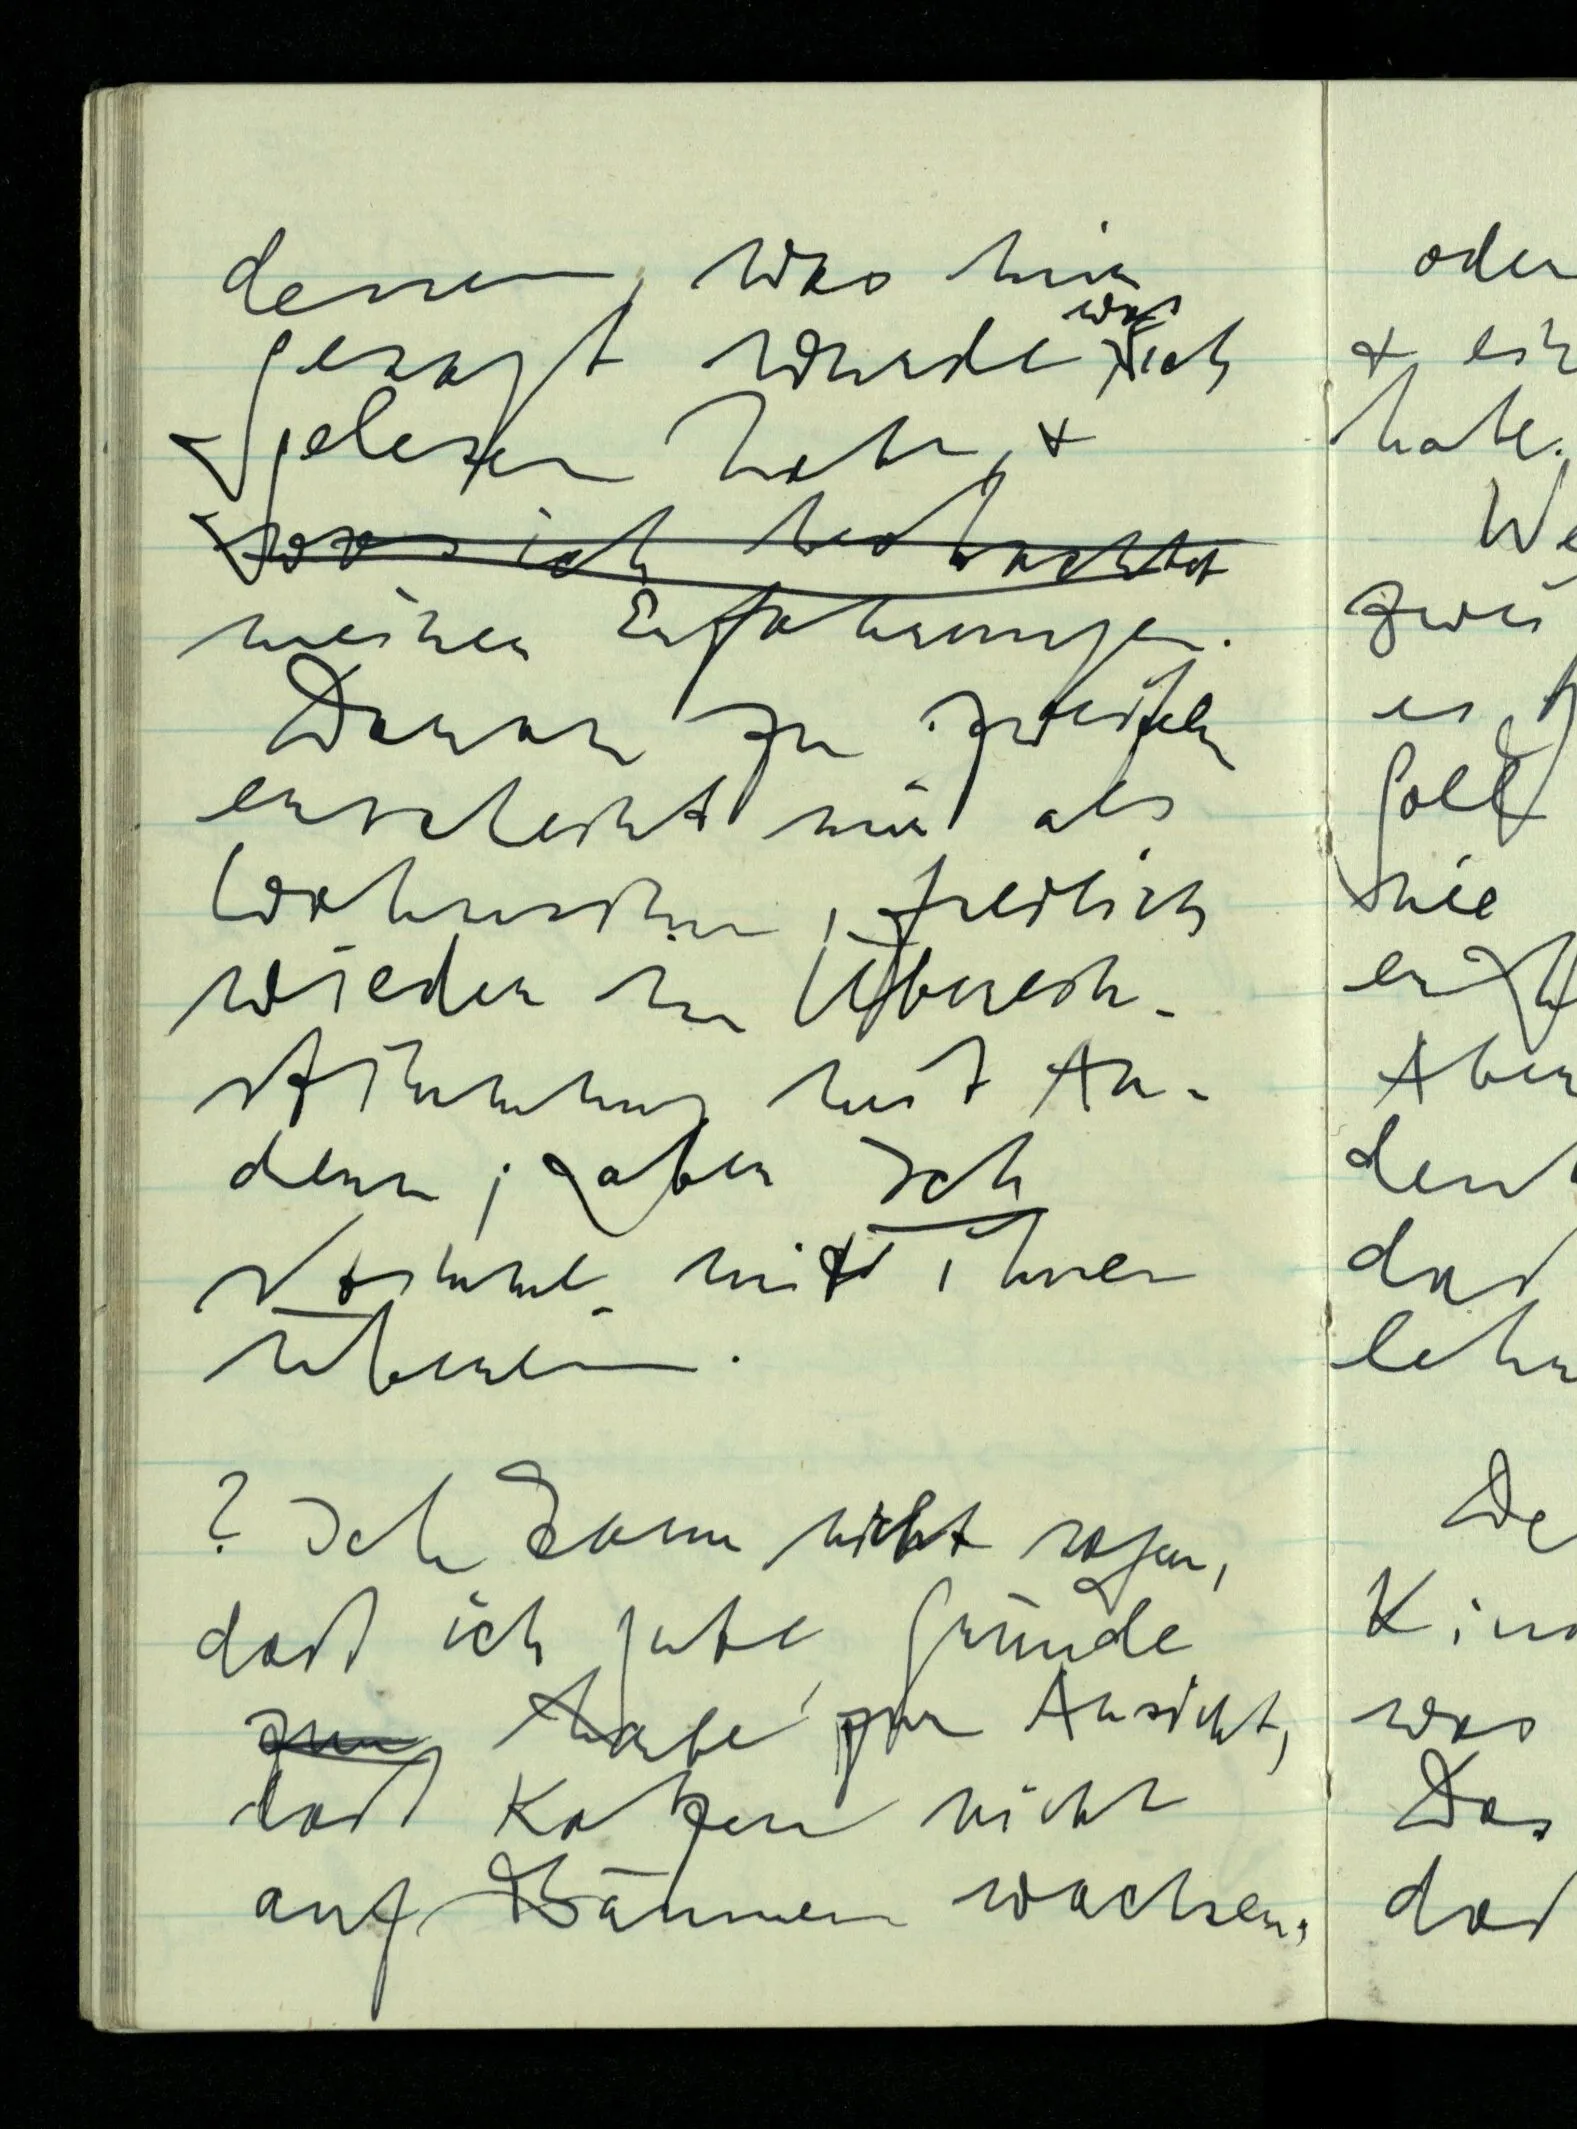 dessen, was mir
gesagt wurde, was ich
gelesen habe, &
was ich beobachtet
meiner Erfahrungen.
Daran zu zweifeln
erscheint mir als
Wahnsinn, freilich
wieder in Überein-
stimmung mit An-
dern; aber Ich
stimme mit ihnen
überein.
? Ich kann nicht sagen,
daß ich gute Gründe
zur habe zur Ansicht,
daß Katzen nicht
auf Bäumen wachsen,
oder
& ein
habe.
We
zwei
es
soll
nie
Aber
den
daß
lehr
De
Kin
was
Das
daß